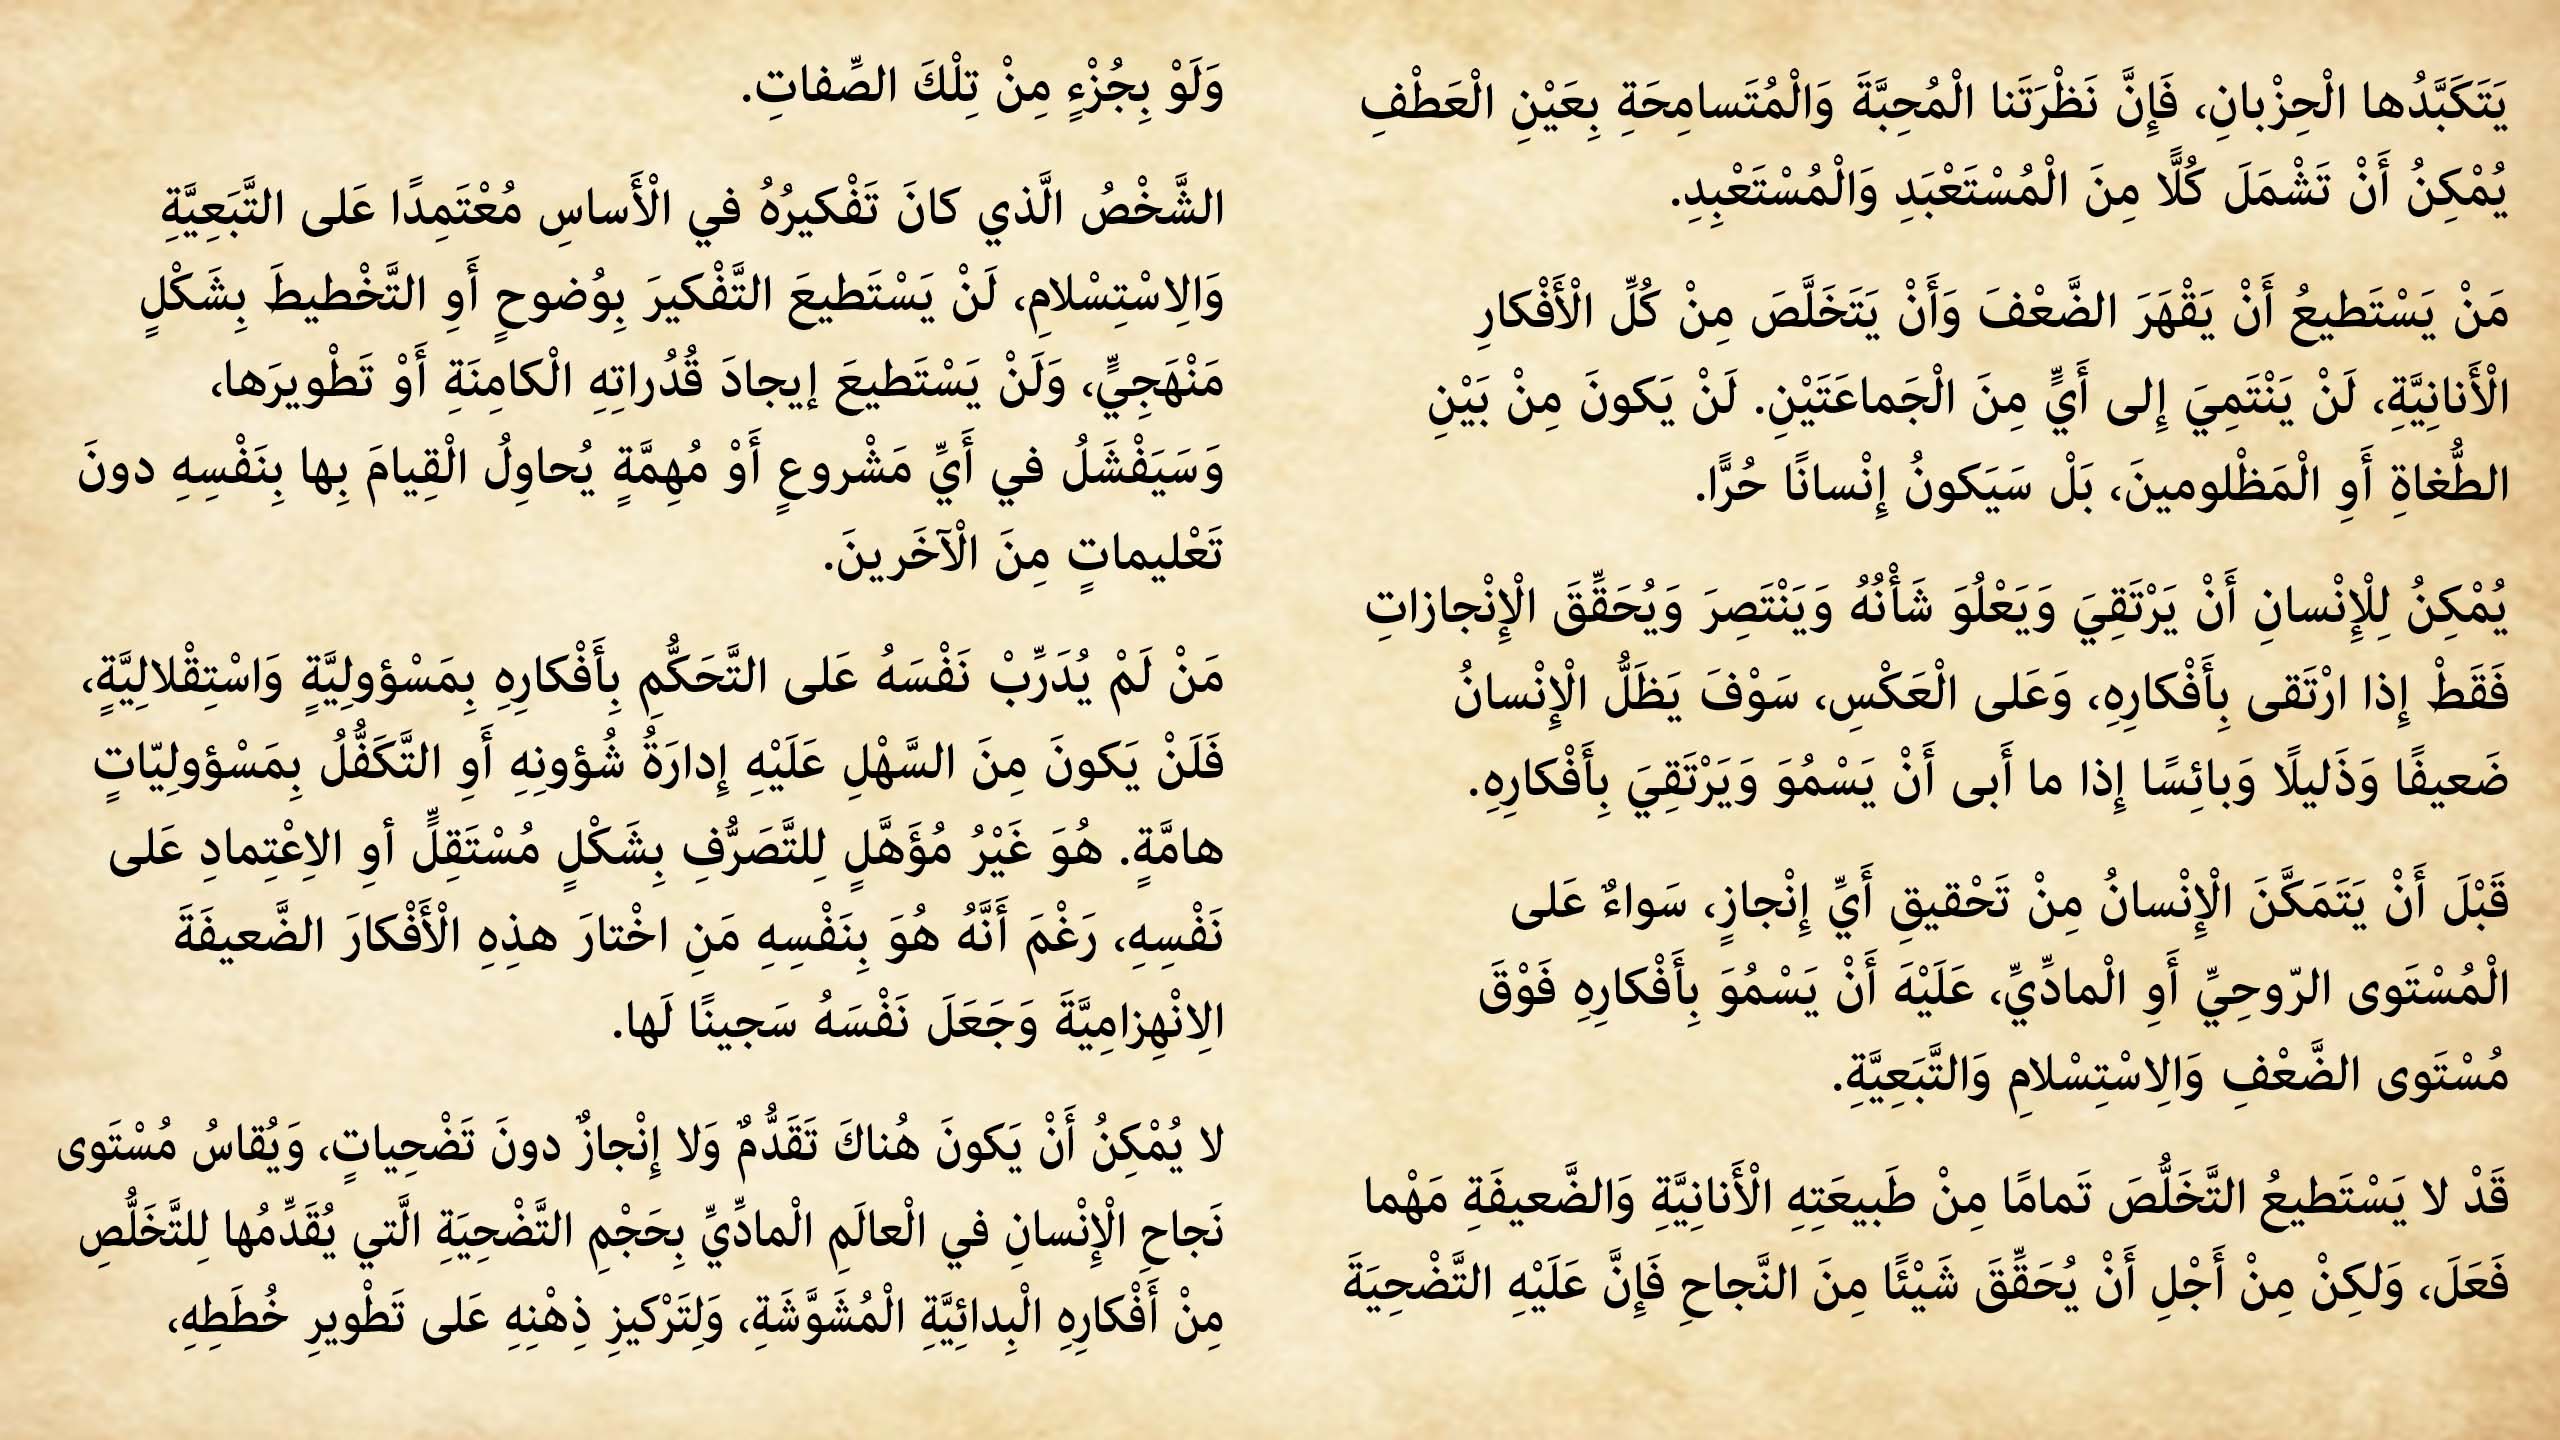 يَتَكَبَّدُها الْحِزْبانِ، فَإِنَّ نَظْرَتَنا الْمُحِبَّةَ وَالْمُتَسامِحَةِ بِعَيْنِ الْعَطْفِ
يُمْكِنُ أَنْ تَشْمَلَ كُلًّا مِنَ الْمُسْتَعْبَدِ وَالْمُسْتَعْبِدِ.
مَنْ يَسْتَطيعُ أَنْ يَقْهَرَ الضَّعْفَ وَأَنْ يَتَخَلَّصَ مِنْ كُلِّ الْأَفْكارِ
الْأَنانِيَّةِ، لَنْ يَنْتَمِيَ إِلى أَيٍّ مِنَ الْجَماعَتَيْنِ. لَنْ يَكونَ مِنْ بَيْنِ
الطُّغاةِ أَوِ الْمَظْلومينَ، بَلْ سَيَكونُ إِنْسانًا حُرًّا.
يُمْكِنُ لِلْإِنْسانِ أَنْ يَرْتَقِيَ وَيَعْلُوَ شَأْنُهُ وَيَنْتَصِرَ وَيُحَقِّقَ الْإِنْجازاتِ
فَقَطْ إِذا ارْتَقى بِأَفْكارِهِ، وَعَلى الْعَكْسِ، سَوْفَ يَظَلُّ الْإِنْسانُ
ضَعيفًا وَذَليلًا وَبائِسًا إِذا ما أَبى أَنْ يَسْمُوَ وَيَرْتَقِيَ بِأَفْكارِهِ.
قَبْلَ أَنْ يَتَمَكَّنَ الْإِنْسانُ مِنْ تَحْقيقِ أَيِّ إِنْجازٍ، سَواءٌ عَلى
الْمُسْتَوى الرّوحِيِّ أَوِ الْمادِّيِّ، عَلَيْهَ أَنْ يَسْمُوَ بِأَفْكارِهِ فَوْقَ
مُسْتَوى الضَّعْفِ وَالِاسْتِسْلامِ وَالتَّبَعِيَّةِ.
قَدْ لا يَسْتَطيعُ التَّخَلُّصَ تَمامًا مِنْ طَبيعَتِهِ الْأَنانِيَّةِ وَالضَّعيفَةِ مَهْما
فَعَلَ، وَلكِنْ مِنْ أَجْلِ أَنْ يُحَقِّقَ شَيْئًا مِنَ النَّجاحِ فَإِنَّ عَلَيْهِ التَّضْحِيَةَ
وَلَوْ بِجُزْءٍ مِنْ تِلْكَ الصِّفاتِ.
الشَّخْصُ الَّذي كانَ تَفْكيرُهُ في الْأَساسِ مُعْتَمِدًا عَلى التَّبَعِيَّةِ
وَالِاسْتِسْلامِ، لَنْ يَسْتَطيعَ التَّفْكيرَ بِوُضوحٍ أَوِ التَّخْطيطَ بِشَكْلٍ
مَنْهَجِيٍّ، وَلَنْ يَسْتَطيعَ إيجادَ قُدُراتِهِ الْكامِنَةِ أَوْ تَطْويرَها،
وَسَيَفْشَلُ في أَيِّ مَشْروعٍ أَوْ مُهِمَّةٍ يُحاوِلُ الْقِيامَ بِها بِنَفْسِهِ دونَ
تَعْليماتٍ مِنَ الْآخَرينَ.
مَنْ لَمْ يُدَرِّبْ نَفْسَهُ عَلى التَّحَكُّمِ بِأَفْكارِهِ بِمَسْؤولِيَّةٍ وَاسْتِقْلالِيَّةٍ،
فَلَنْ يَكونَ مِنَ السَّهْلِ عَلَيْهِ إِدارَةُ شُؤونِهِ أَوِ التَّكَفُّلُ بِمَسْؤولِيّاتٍ
هامَّةٍ. هُوَ غَيْرُ مُؤَهَّلٍ لِلتَّصَرُّفِ بِشَكْلٍ مُسْتَقِلٍّ أوِ الاِعْتِمادِ عَلى
نَفْسِهِ، رَغْمَ أَنَّهُ هُوَ بِنَفْسِهِ مَنِ اخْتارَ هذِهِ الْأَفْكارَ الضَّعيفَةَ
الِانْهِزامِيَّةَ وَجَعَلَ نَفْسَهُ سَجينًا لَها.
لا يُمْكِنُ أَنْ يَكونَ هُناكَ تَقَدُّمٌ وَلا إِنْجازٌ دونَ تَضْحِياتٍ، وَيُقاسُ مُسْتَوى
نَجاحِ الْإِنْسانِ في الْعالَمِ الْمادِّيِّ بِحَجْمِ التَّضْحِيَةِ الَّتي يُقَدِّمُها لِلتَّخَلُّصِ
مِنْ أَفْكارِهِ الْبِدائِيَّةِ الْمُشَوَّشَةِ، وَلِتَرْكيزِ ذِهْنِهِ عَلى تَطْويرِ خُطَطِهِ،